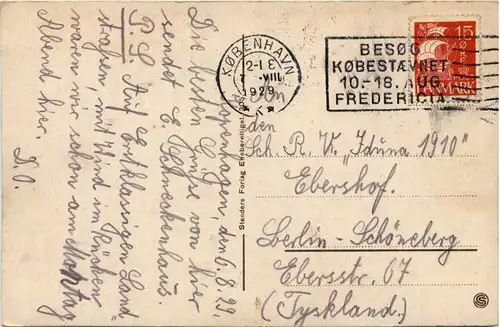 Kopenhagen, d. 6.8.29.
Die besten Grüsse von hier
sendet E. Schneckenhaus.
P.S. Auf erstklassigen Land=
strassen, mit Wind im Rücken
waren wir schon am Montag
Abend hier.
D.O.
Stenders Forlag Eneberettiget
KØBENHAVN
12-1 E
7 VIII
1929
K
BESØG
KØBESTÆVNET
10-18. AUG.
FREDERICIA
15
DANMARK
An
den
Sch. R. V. „Iduna 1910"
Ebershof.
Berlin-Schöneberg
Ebersstr. 67
(Tyskland.)
S